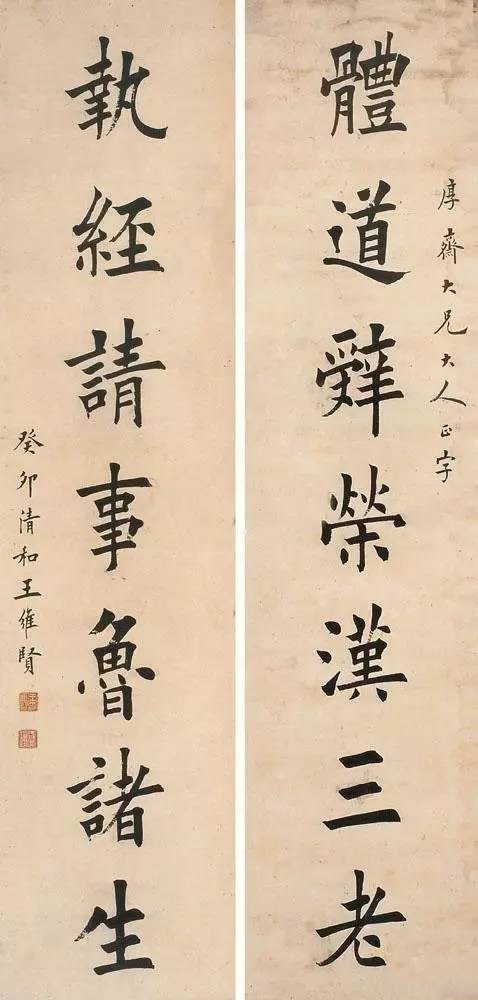 厚齋大兄大人正字
體道辤榮漢三老
執經請事魯諸生
癸卯清和王維賢